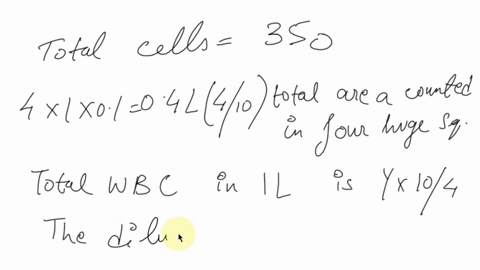 Total cells = 350
4 x 1 x 0.1 = 0.4 L (4/10) total are a counted
in four huge sq.
Total WBC in 1L is Y x 10/4
The dilu